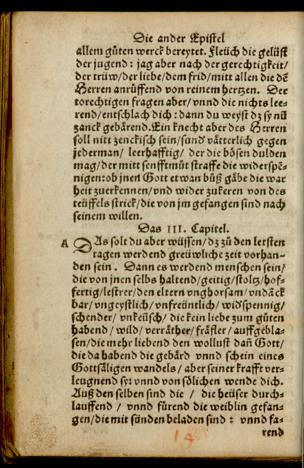 Die ander Epistel
allem gůten werck bereytet. Fleüch die gelüst
der jugend: jag aber nach der gerechtigkeit/
der trüw/ der liebe/ dem frid/ mitt allen die dē
Herren anrüffend von reinem hertzen. Der
torechtigen fragen aber/ vnnd die nichts lee-
rend/ entschlach dich: dann du weyst dz sy nū
zanck gebärend. Ein knecht aber des Herren
soll nitt zenckisch sein/ sund vätterlich gegen
jederman/ leerhafftig/ der die bösen dulden
mag/ der mitt senfftmüt straffe die widerspē-
nigen: ob jnen Gott etwan bůß gäbe die war
heit zuerkennen/ vnd wider zukeren von des
teüffels strick/ die von jm gefangen sind nach
seinem willen.
Das III. Capitel.
A DAs solt du aber wüssen/ dz zů den letsten
tagen werdend greüwliche zeit vorhan-
den sein. Dann es werdend menschen sein/
die von jnen selbs haltend/ geitig/ stoltz/ hof-
fertig/ lestrer/ den eltern vnghorsam/ vndāck
bar/ vngeystlich/ vnfreüntlich/ widspennig/
schender/ vnkeüsch/ die kein liebe zum gůten
habend/ wild/ verräther/ fräfler/ auffgebla-
sen/ die mehr liebend den wollust dañ Gott/
die da habend die gebärd vnnd schein eines
Gottsäligen wandels/ aber seiner krafft ver-
leugnend sy: vnnd von sölichen wende dich.
Auß den selben sind die / die heüser durch-
lauffend / vnnd fürend die weiblin gefan-
gen/ die mit sünden beladen sind: vnnd fa-
rend
14